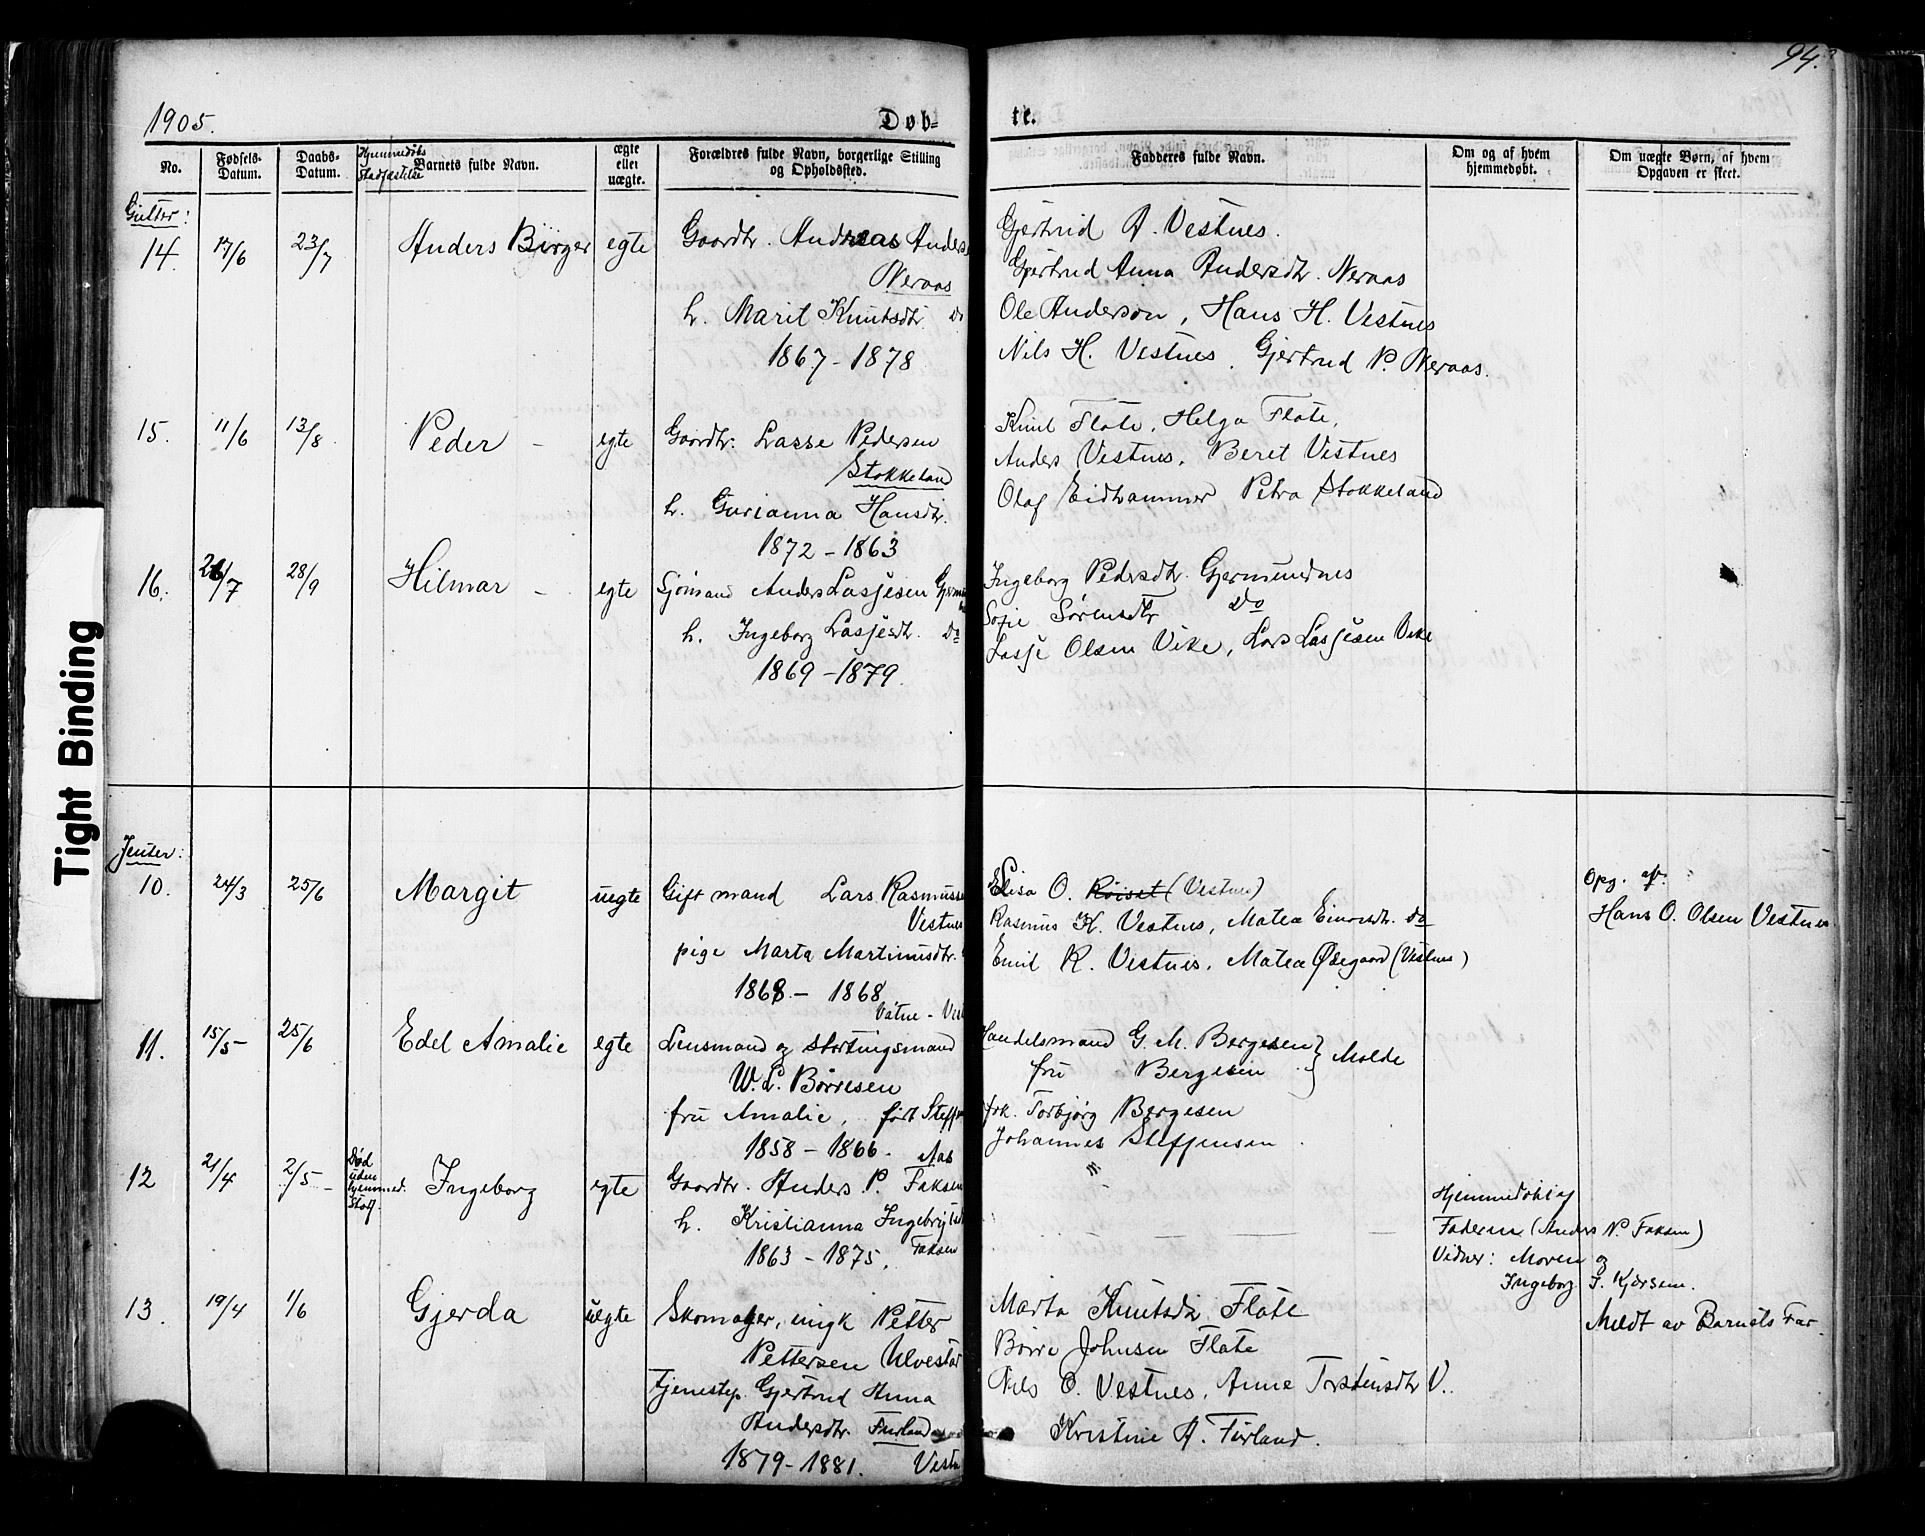 94.
1905.
Døb-
te.
No.
Fødsels-Datum.
Daabs-Datum.
Hjemmedøbs Stadfæstelse
Barnets fulde Navn.
ægte eller uægte.
Forældres fulde Navn, borgerlige Stilling og Opholdssted.
Fadderes fulde Navn.
Om og af hvem hjemmedøbt.
Om uægte Børn, af hvem Opgaven er skeet.
Gutter:
14. 17/6 23/7 Anders Birger egte Gaardbr. Andreas Anders
Neraas
h. Marit Knutsdtr. Do
1867 - 1878
Gjertrud A. Vestnes.
Gjertrud Anna Andersdtr. Neraas
Ole Anderson, Hans H. Vestnes
Nils H. Vestnes. Gjertrud P. Neraas.
15. 11/6 13/8 Peder - egte Gaardbr. Lasse Pedersen
Stokkeland
h. Gurianna Hansdtr.
1872 - 1863
Knut Flate, Helga Flate,
Anders Vestnes, Beret Vestnes
Olaf Eidhammer Petra Stokkeland
16. /7 28/9 Hilmar - egte Sjømand Anders Lasjesen
h. Ingeborg Lasjesdtr. Do
1869 - 1879.
Ingeborg Pedersdtr. Gjermundnes
Sofie Sørensdtr Do
Lasje Olsen Vike, Lars Lasjesen Vike
Jenter:
10. 24/3 25/6 Margit uegte Gift mand Lars Rasmusse
Vestnes
pige Marta Martinusdtr.
1868 - 1868
Elisa O. Røiset (Vestnes)
Rasmus K. Vestnes, Matea Einarsdtr. Do
Emil R. Vestnes, Matea Ødegaard (Vestnes)
Opg. af
Hans O. Olsen Vestnes.
Vatne - Vest
11. 15/5 - 25/6 Edel Amalie egte Lensmand og stortingsmand
W. L. Børresen
fru Amalie, født Steff
1858 - 1866.
Handelsmand G. M. Bergesen
fru Bergesen } Molde
frk. Torbjørg Bergesen
Johannes Steffensen.
12 21/4 2/5 - Død uden hjemmed. Stadf. Ingeborg egte Gaardbr. Anders P. Faksen
h. Kristianna Ingebrigtsd
1863 - 1875. Faksen
Hjemmedøbt af
Faderen (Anders P. Faksen)
Vidner: Moren og
Ingeborg J. Kjersem.
13. 19/4 1/6 Gjerda uegte Skomager, ungk Petter
Pettersen Ulvestad
Tjenestep. Gjertrud Anna
Andersdtr. Furland
1879 - 1881. Vestn
Marta Knutsdtr Flate
Børre Johnsen Flate
Nils O. Vestnes, Anne Torstensdtr V.
Kristine A. Furland.
Meldt av Barnets Far.
Tight Binding